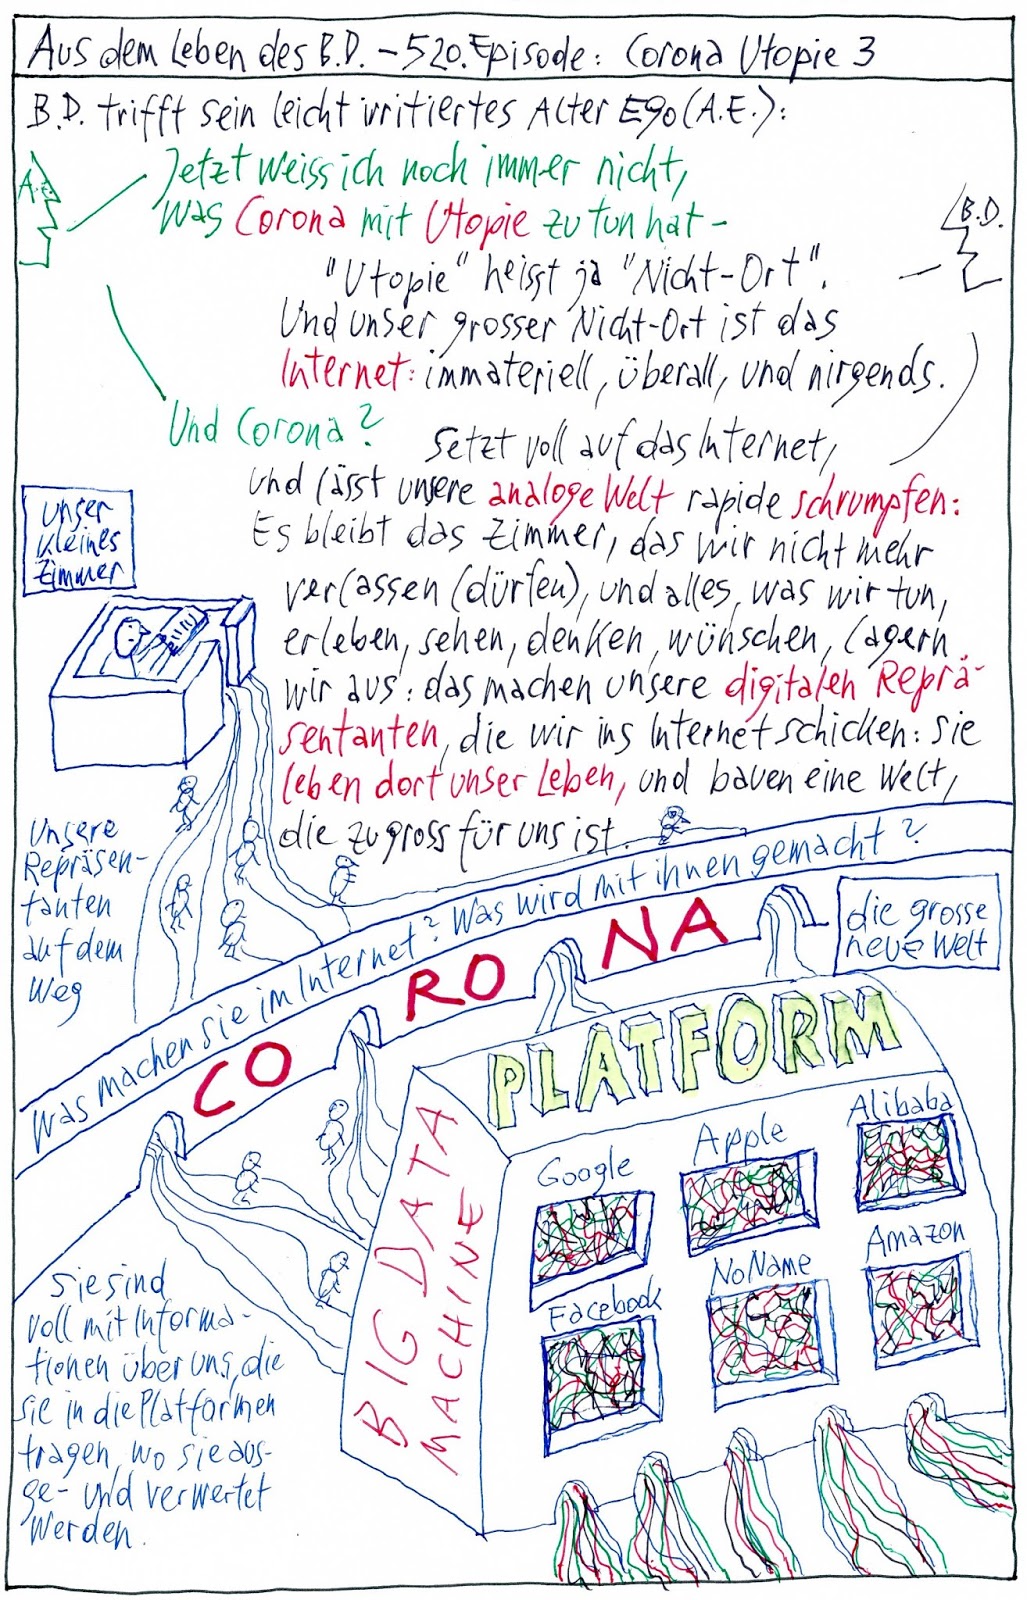 Aus dem Leben des B.D. – 520. Episode: Corona Utopie 3
B.D. trifft sein leicht irritiertes Alter Ego (A.E.):
A.E.
Jetzt weiss ich noch immer nicht,
was Corona mit Utopie zu tun hat –
B.D.
"Utopie" heisst ja "Nicht-Ort".
Und unser grosser Nicht-Ort ist das
Internet: immateriell, überall, und nirgends.
Und Corona?
Setzt voll auf das Internet,
und lässt unsere analoge Welt rapide schrumpfen:
Es bleibt das Zimmer, das wir nicht mehr
verlassen (dürfen), und alles, was wir tun,
erleben, sehen, denken, wünschen, lagern
wir aus: das machen unsere digitalen Reprä-
sentanten, die wir ins Internet schicken: sie
leben dort unser Leben, und bauen eine Welt,
die zu gross für uns ist.
unser
kleines
Zimmer
Unsere
Repräsen-
tanten
auf dem
Weg
Was machen sie im Internet? Was wird mit ihnen gemacht?
CORONA
die grosse
neue Welt
PLATFORM
BIG DATA
MACHINE
Google
Apple
Alibaba
Facebook
NoName
Amazon
Sie sind
voll mit Informa-
tionen über uns, die
sie in die Platformen
tragen, wo sie aus-
ge- und verwertet
werden.